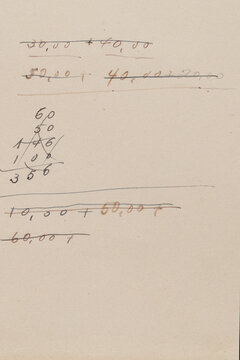 30,00 + 40,00
50,00 + 40,00+20,00
60
50
146
100
356
10,00 + 50,00 +
60,00 +